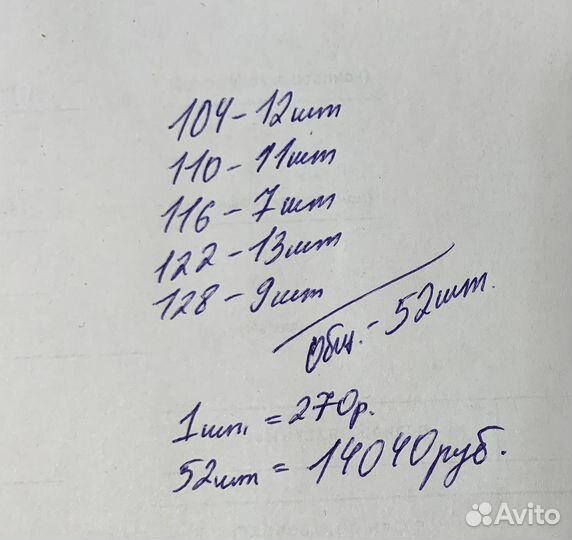 104 - 12шт
110 - 11шт
116 - 7шт
122 - 13шт
128 - 9шт
Общ. - 52шт.
1шт. = 270р.
52шт = 14040руб.
Avito